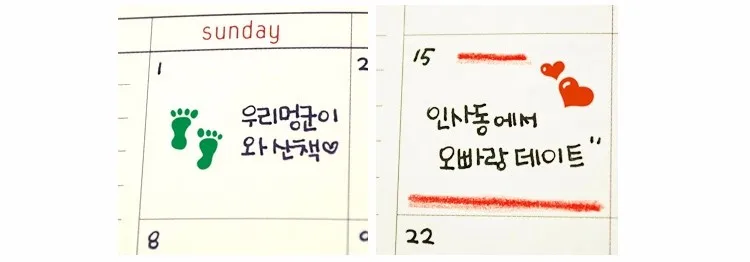 sunday
1
2
우리멍군이
와 산책♡
8
15
인사동에서
오빠랑 데이트"
22